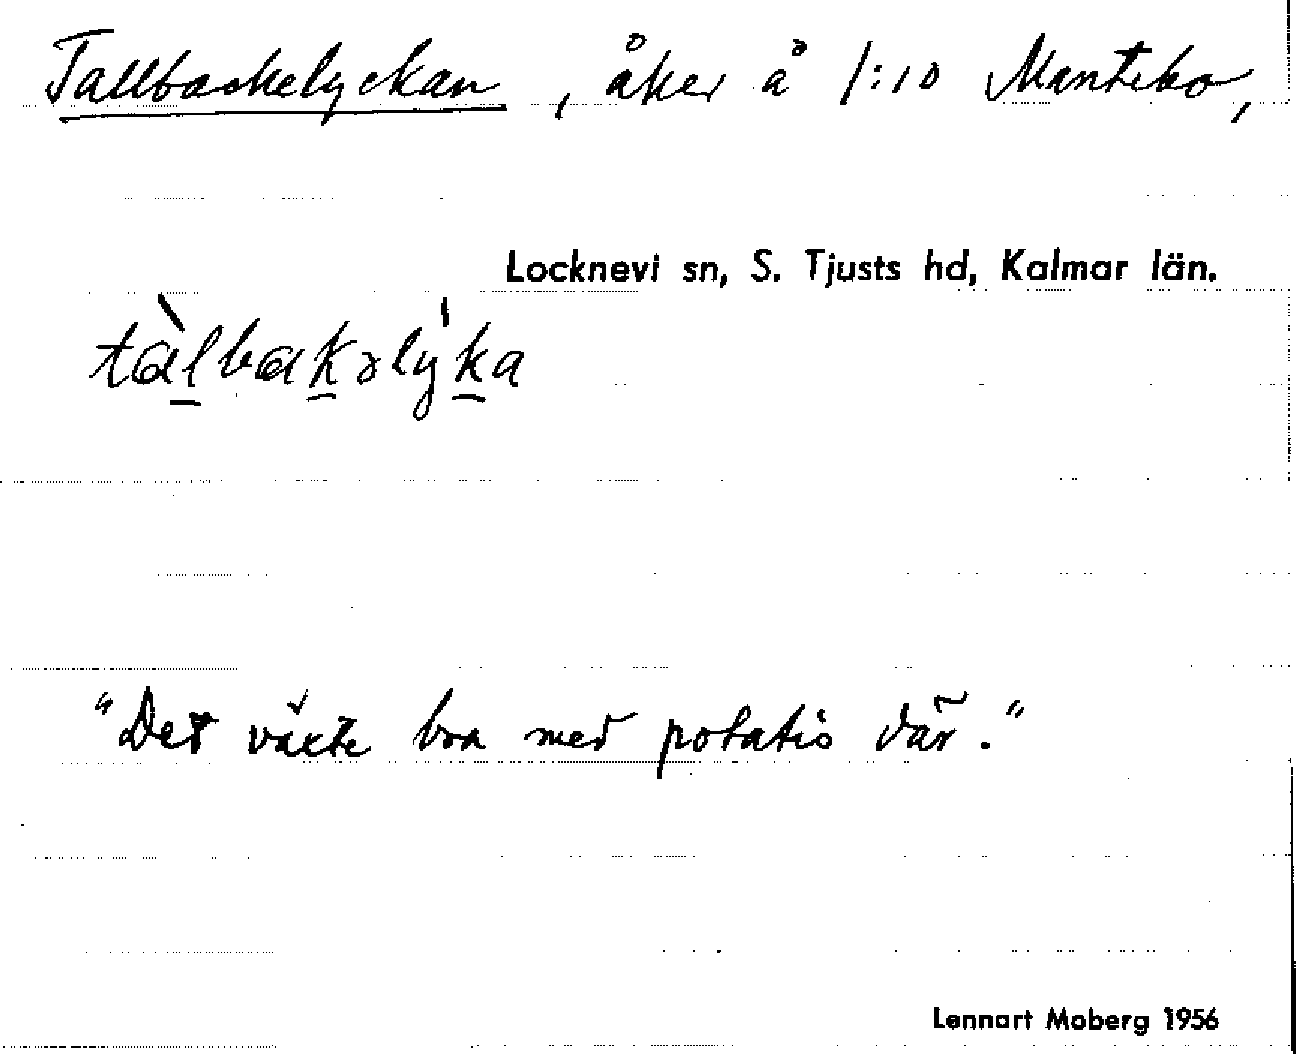 Tallbackelyckan, åker å 1:10 Mantebo,
Locknevi sn, S. Tjusts hd, Kalmar län.
tàlbakəly̍ka
"Det växte bra med potatis där."
Lennart Moberg 1956